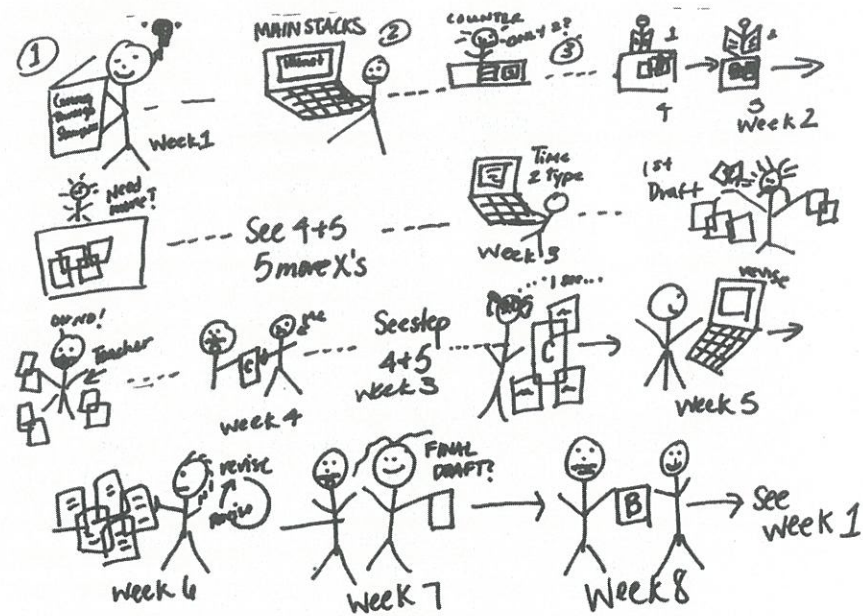 1
MAIN STACKS
2
COUNTER
ONLY 2?
3
1
2
Week 1
4
5
Week 2
Need
more?
See 4+5
5 more X's
Time
2 Type
Week 3
1st
Draft
OH NO!
Teacher
me
C
Week 4
See step
4+5
Week 3
I see...
C
revise
Week 5
revise
revise
Week 6
FINAL
DRAFT?
Week 7
B
Week 8
See
Week 1